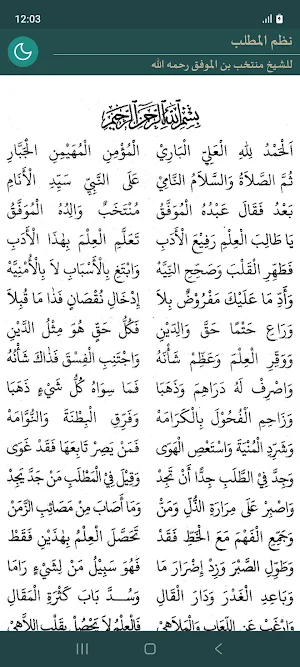 12:03
نظم المطلب
للشيخ منتخب بن الموفق رحمه الله
بِسْمِ اللهِ الرَّحْمٰنِ الرَّحِيْمِ
اَلْحَمْدُ لِلهِ الْعَلِيِّ الْبَارِيْ الْمُؤْمِنِ الْمُهَيْمِنِ الْجَبَّارِ
ثُمَّ الصَّلَاةُ وَالسَّلَامُ النَّامِيْ عَلَى النَّبِيِّ سَيِّدِ الْأَنَامِ
بَعْدُ فَقَالَ عَبْدُهُ الْمُوَفَّقُ مُنْتَخَبٌ وَالِدُهُ الْمُوَفَّقُ
يَا طَالِبَ الْعِلْمِ رَفِيْعَ الْأَدَبِ تَعَلَّمِ الْعِلْمَ بِهٰذَا الْأَدَبِ
فَطَهِّرِ الْقَلْبَ وَصَحِّحِ النِّيَّهْ وَابْتَغِ بِالْأَسْبَابِ لَا بِالْأُمْنِيَّهْ
وَأَدِّ مَا عَلَيْكَ مَفْرُوْضٌ بِلَا إِدْخَالِ نُقْصَانٍ فَذَا مَا قُبِلَا
وَرَاعِ حَتْمًا حَقَّ وَالِدَيْنِ فَكُلُّ حَقٍّ هُوَ مِثْلُ الدَّيْنِ
وَوَقِّرِ الْعِلْمَ وَعَظِّمْ شَأْنَهُ وَاجْتَنِبِ الْفِسْقَ فَذَاكَ شَأْنُهُ
وَاصْرِفْ لَهُ دَرَاهِمَ وَذَهَبَا فَمَا سِوَاهُ كُلُّ شَيْءٍ ذَهَبَا
وَزَاحِمِ الْفُحُوْلَ بِالْكَرَامَهْ وَفَرِّقِ الْبِطْنَةَ وَالنُّوَّامَهْ
وَشَرِّدِ الْمُنْيَةَ وَاسْتَعْصِ الْهَوَى فَمَنْ يَصِرْ تَابِعَهَا فَقَدْ غَوَى
وَجِدَّ فِي الطَّلَبِ جِدًّا أَنْ تَجِدْ وَقِيْلَ فِي الْمَطْلَبِ مَنْ جَدَّ يَجِدْ
وَاصْبِرْ عَلَى مِرَارَةِ الذُّلِّ وَمَنْ وَمَا أَصَابَ مِنْ مَصَائِبِ الزَّمَنْ
وَجَمِّعِ الْفَهْمَ مَعَ الْخَطِّ فَقَدْ تَحَصَّلَ الْعِلْمُ بِهٰذَيْنِ فَقَطْ
وَطَوِّلِ الصَّبْرَ وَزِدْ إِضْرَارَ مَا فَهُوَ سَبِيْلُ مَنْ لِشَيْءٍ رَامَا
وَبَاعِدِ الْغَدْرَ وَدَارَ الْقَالِ وَسُدَّ بَابَ كَثْرَةِ الْمَقَالِ
وَارْغَبْ عَنِ اللَّعَابِ وَالْمَلَاهِيْ فَالْعِلْمُ لَا يَحْصُلُ بِقَلْبِ اللَّاهِيْ